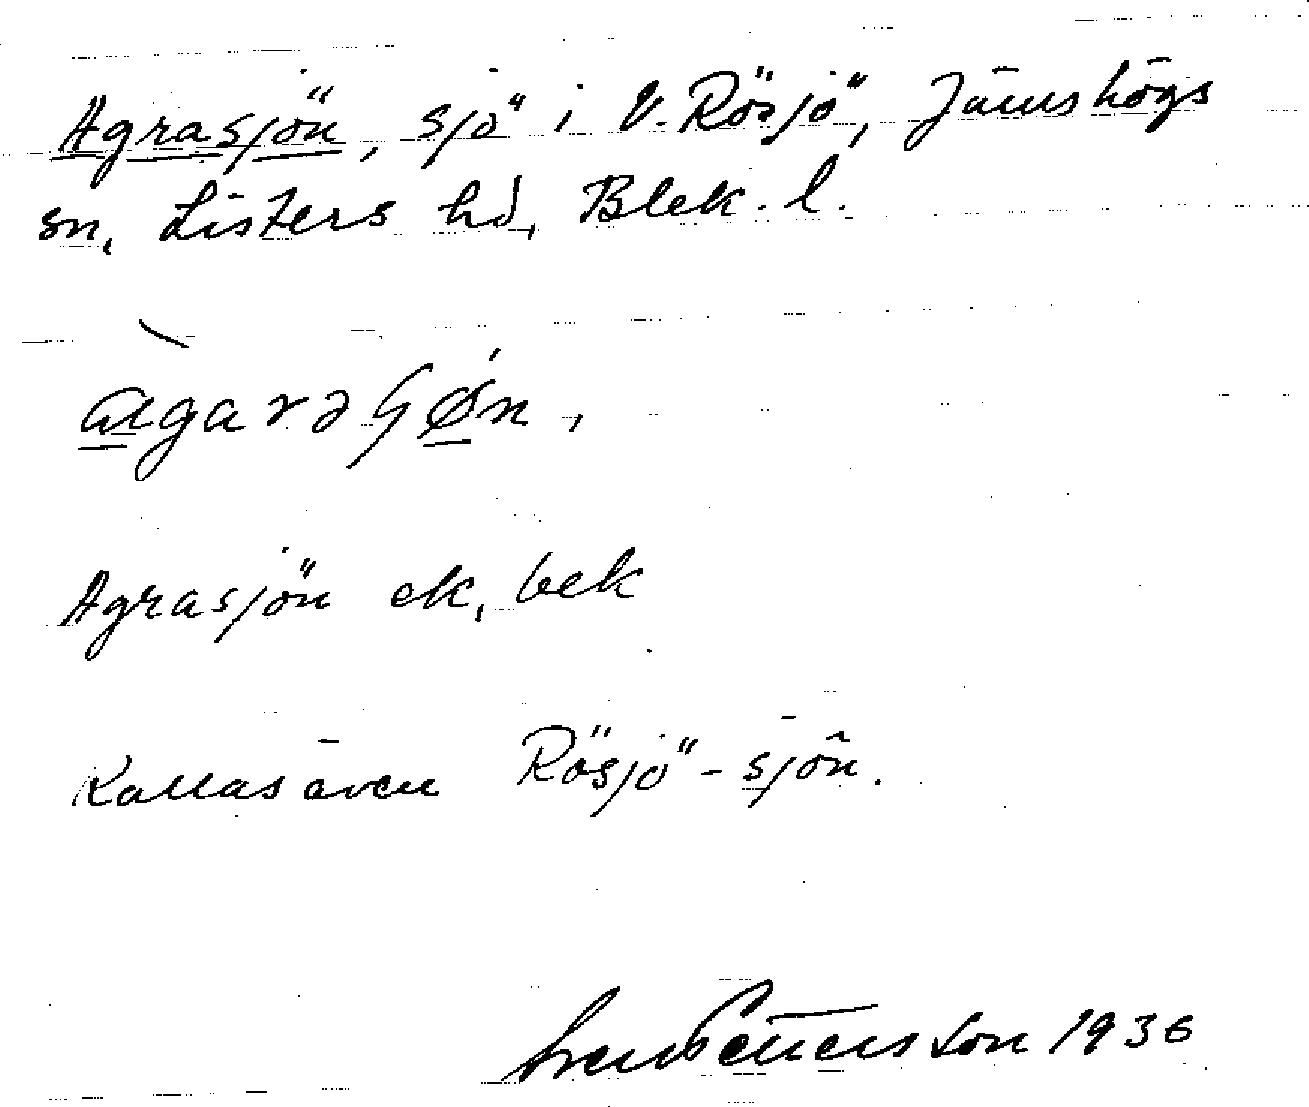 Agrasjön, sjö i V. Rösjö, Jämshögs
sn, Listers hd, Blek. l.
Agrasjön ek, bek
Kallas även Rösjö-sjön.
Sven Pettersson 1936